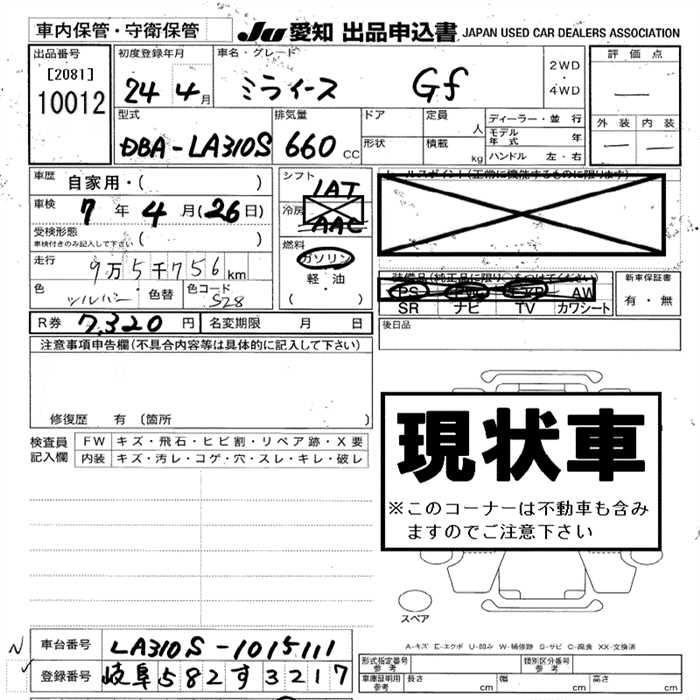 車内保管・守衛保管
JU 愛知 出品申込書 JAPAN USED CAR DEALERS ASSOCIATION
出品番号 [2081] 10012
初度登録年月 24 4月
車名・グレード ミライース Gf
2WD・4WD
評価点 —
外装 — 内装 —
型式 DBA-LA310S
排気量 660 CC
ドア 定員 人
形状 積載 kg
ディーラー・並行
モデル年式 年
ハンドル 左・右
車歴 自家用・( )
車検 7年4月(26日)
受検形態 車検付きのみ記入して下さい ( )
走行 9万5千756km
色 シルバー 色替 色コード S28
シフト IAT
冷房 AAC
燃料 ガソリン 軽油 ( )
セールスポイント(正常に機能するものに限ります)
装備品(純正品に限り○をつけて下さい)
PS PW エアB AW
SR ナビ TV カワシート
新車保証書 有・無
後日品
R券 7,320円 名変期限 月 日
注意事項申告欄(不具合内容等は具体的に記入して下さい)
修復歴 有 〔箇所 〕
検査員記入欄
FW キズ・飛石・ヒビ割・リペア跡・X要
内装 キズ・汚レ・コゲ・穴・スレ・キレ・破レ
現状車
※このコーナーは不動車も含み
ますのでご注意下さい
スペア
A-キズ E-エクボ U-凹み W-補修跡 S-サビ C-腐食 XX-交換済
車台番号 LA310S-1015111
登録番号 岐阜582す3217
型式指定番号 参考
類別区分番号 参考
車庫証明用 参考 長さ cm 幅 cm 高さ cm